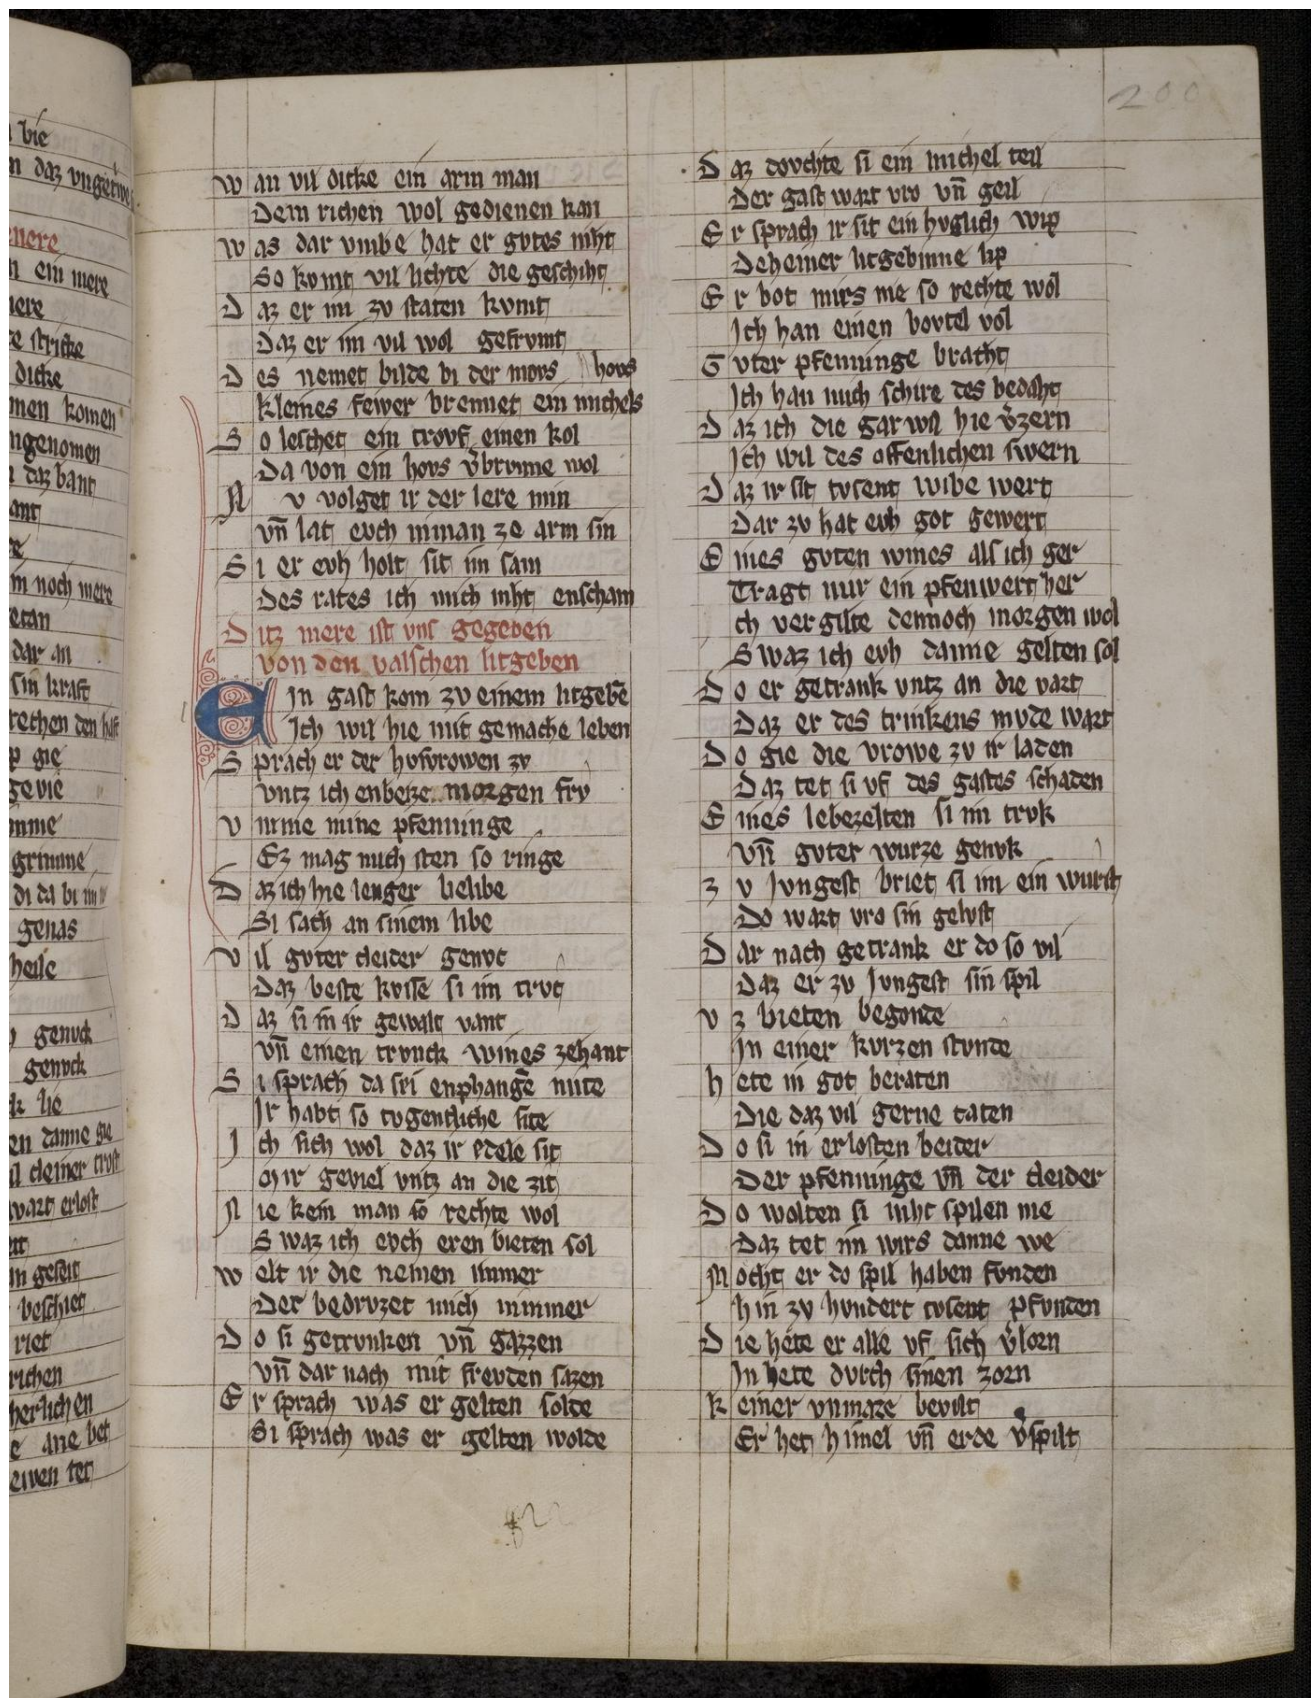 bie
n daz vngetwe
nere
n ein mere
iere
e stricke
dicke
men komen
ngenomen
daz bant
ant
m noch mere
etan
dar an
sin kraft
rechen den haft
p gie
gevie
mme
grimme
di da bi im
genas
heile
genvck
genvck
k lie
en danne gie
il cleiner trost
wart erlost
in geseit
beschiet
riet
richen
herlichen
e ane bet
ewen tet
200
Wan vil dicke ein arm man
Dem richen wol gedienen kan
Was dar vmbe hat er gvtes niht
So kvmt vil lichte die geschiht
Daz er im zv staten kvmt
Daz er im vil wol gefrvmt
Des nemet bilde bi der mvs hovs
kleines fewer brennet ein michels
So leschet ein trovf einen kol
Da von ein hovs v̉brvnne wol
Nv volget ir der lere min
vn̄ lat evch niman ze arm sin
Si er evh holt sit im sam
Des rates ich mich niht enscham
Ditz mere ist vns gegeben
von den valschen litgeben
Ein gast kom zv einem litgebē
Ich wil hie mit gemache leben
Sprach er der hvsvrowen zv
vntz ich enbeize morgen frv
vmme mine pfenninge
Ez mag mich sten so ringe
Daz ich hie lenger belibe
Si sach an sinem libe
vil gvter cleider genvc
Daz beste kvsse si im trvc
Daz si in ir gewalt vant
vn̄ einen trvnck wines zehant
Si sprach da sri enphangē mite
Ir habt so tvgentliche site
Ich sich wol daz ir edele sit
Mir geviel vntz an die zit
Nie kein man so rechte wol
Swaz ich evch eren bieten sol
Welt ir die nemen immer
Der bedrvzet mich nimmer
Do si getrvnken vn̄ gazzen
vn̄ dar nach mit frevden sazen
Er sprach was er gelten solde
Si sprach was er gelten wolde
Daz dovchte si ein michel teil
Der gast wart vro vn̄ geil
Er sprach ir sit ein hvglich wip
Deheiner litgebinne lip
Er bot mirs me so rechte wol
Ich han einen bovtel vol
Gvter pfenninge bracht
Ich han mich schire des bedaht
Daz ich die gar wil hie v̉zern
Ich wil des offenlichen swern
Daz ir sit tvsent wibe wert
Dar zv hat evh got gewert
Eines gvten wines als ich ger
Tragt nur ein pfenwert her
ch vergilte dennoch morgen wol
Swaz ich evh danne gelten sol
Do er getrank vntz an die vart
Daz er des trinkens mvde wart
Do gie die vrowe zv ir laden
Daz tet si vf des gastes schaden
Eines lebezelten si im trvk
Vn̄ gvter wurze genvk
zv Jvngest briet si im ein wurst
Do wart vro sin gelvst
Dar nach getrank er do so vil
Daz er zv Jvngest sin spil
vz bieten begonde
In einer kvrzen stvnde
hete in got beraten
Die daz vil gerne taten
Do si in erlosten beider
Der pfenninge vn̄ der cleider
Do wolten si niht spilen me
Daz tet im wirs danne we
Mocht er do spil haben fvnden
hin zv hvndert tvsent pfvnden
Die hete er alle vf sich v̉lorn
In hete dvrch sinen zorn
keiner vnmaze bevilt
Er het himel vn̄ erde v̉spilt